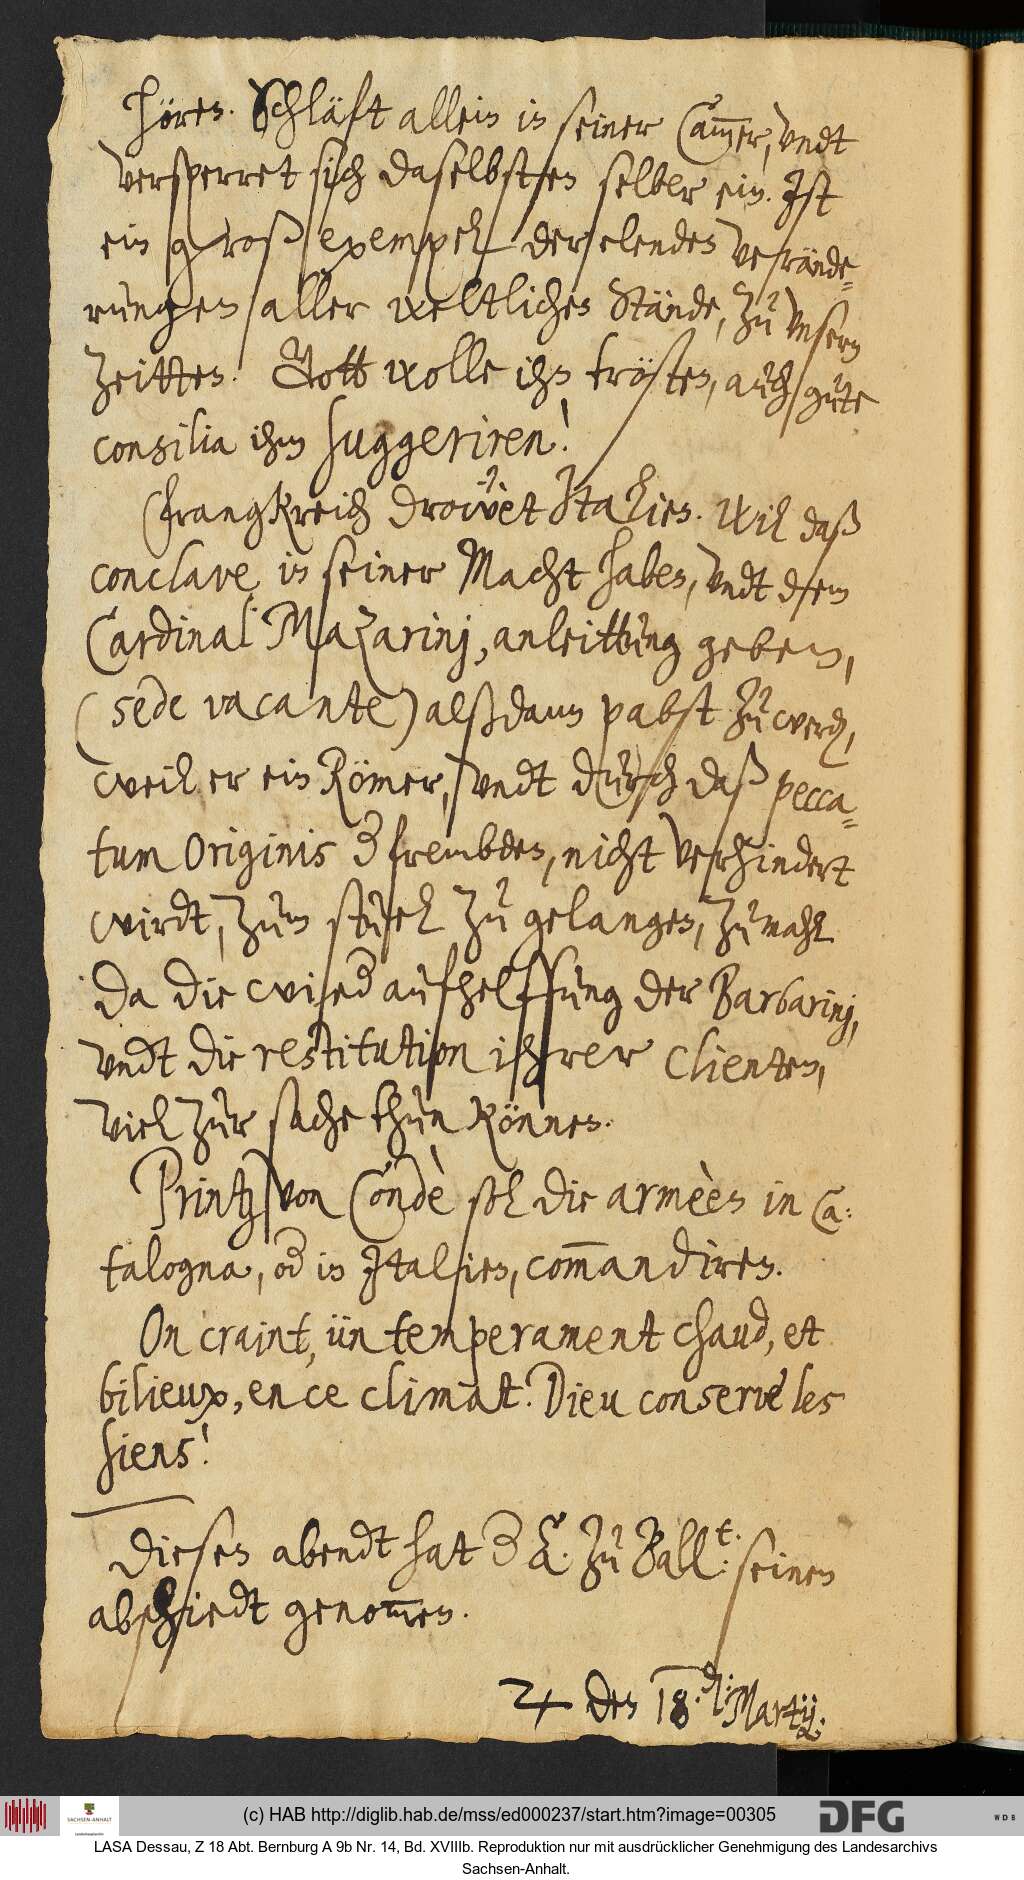 hören. Schläft allein in seiner Cam̅er, vndt
versperret sich daselbsten selber ein. Ist
ein groß exempel der elenden verände=
rungen aller weltlichen Stände, zu vnsern
Zeitten. Gott wolle ihn trösten, auch gute
consilia ihm suggeriren!
Frangkreich drowet Italien. Wil daß
conclave in seiner Macht haben, vndt dem
Cardinal Mazarinj, anleittung geben,
(sede vacante) alßdann pabst zu werd,
weil er ein Römer, vndt durch daß pecca=
tum Originis der frembden, nicht verhindert
wirdt, zum stuel zu gelangen, zumahl
da die wieder aufhelffung der Barbarinj,
vndt die restitution ihrer Clienten,
viel zur sache thun können.
Printz von Condè sol die armèen in Ca:
talogna, od in Italien, com̅andiren.
On craint, ün temperament chaud, et
bilieux, en ce climat. Dieu conserve les
siens!
Diesen abendt hat der zu Ball.t: seinen
abschiedt genom̅en.
♃ den 18.d: Martij:
(c) HAB http://diglib.hab.de/mss/ed000237/start.htm?image=00305
SACHSEN-ANHALT
DFG
WDB
LASA Dessau, Z 18 Abt. Bernburg A 9b Nr. 14, Bd. XVIIIb. Reproduktion nur mit ausdrücklicher Genehmigung des Landesarchivs
Sachsen-Anhalt.